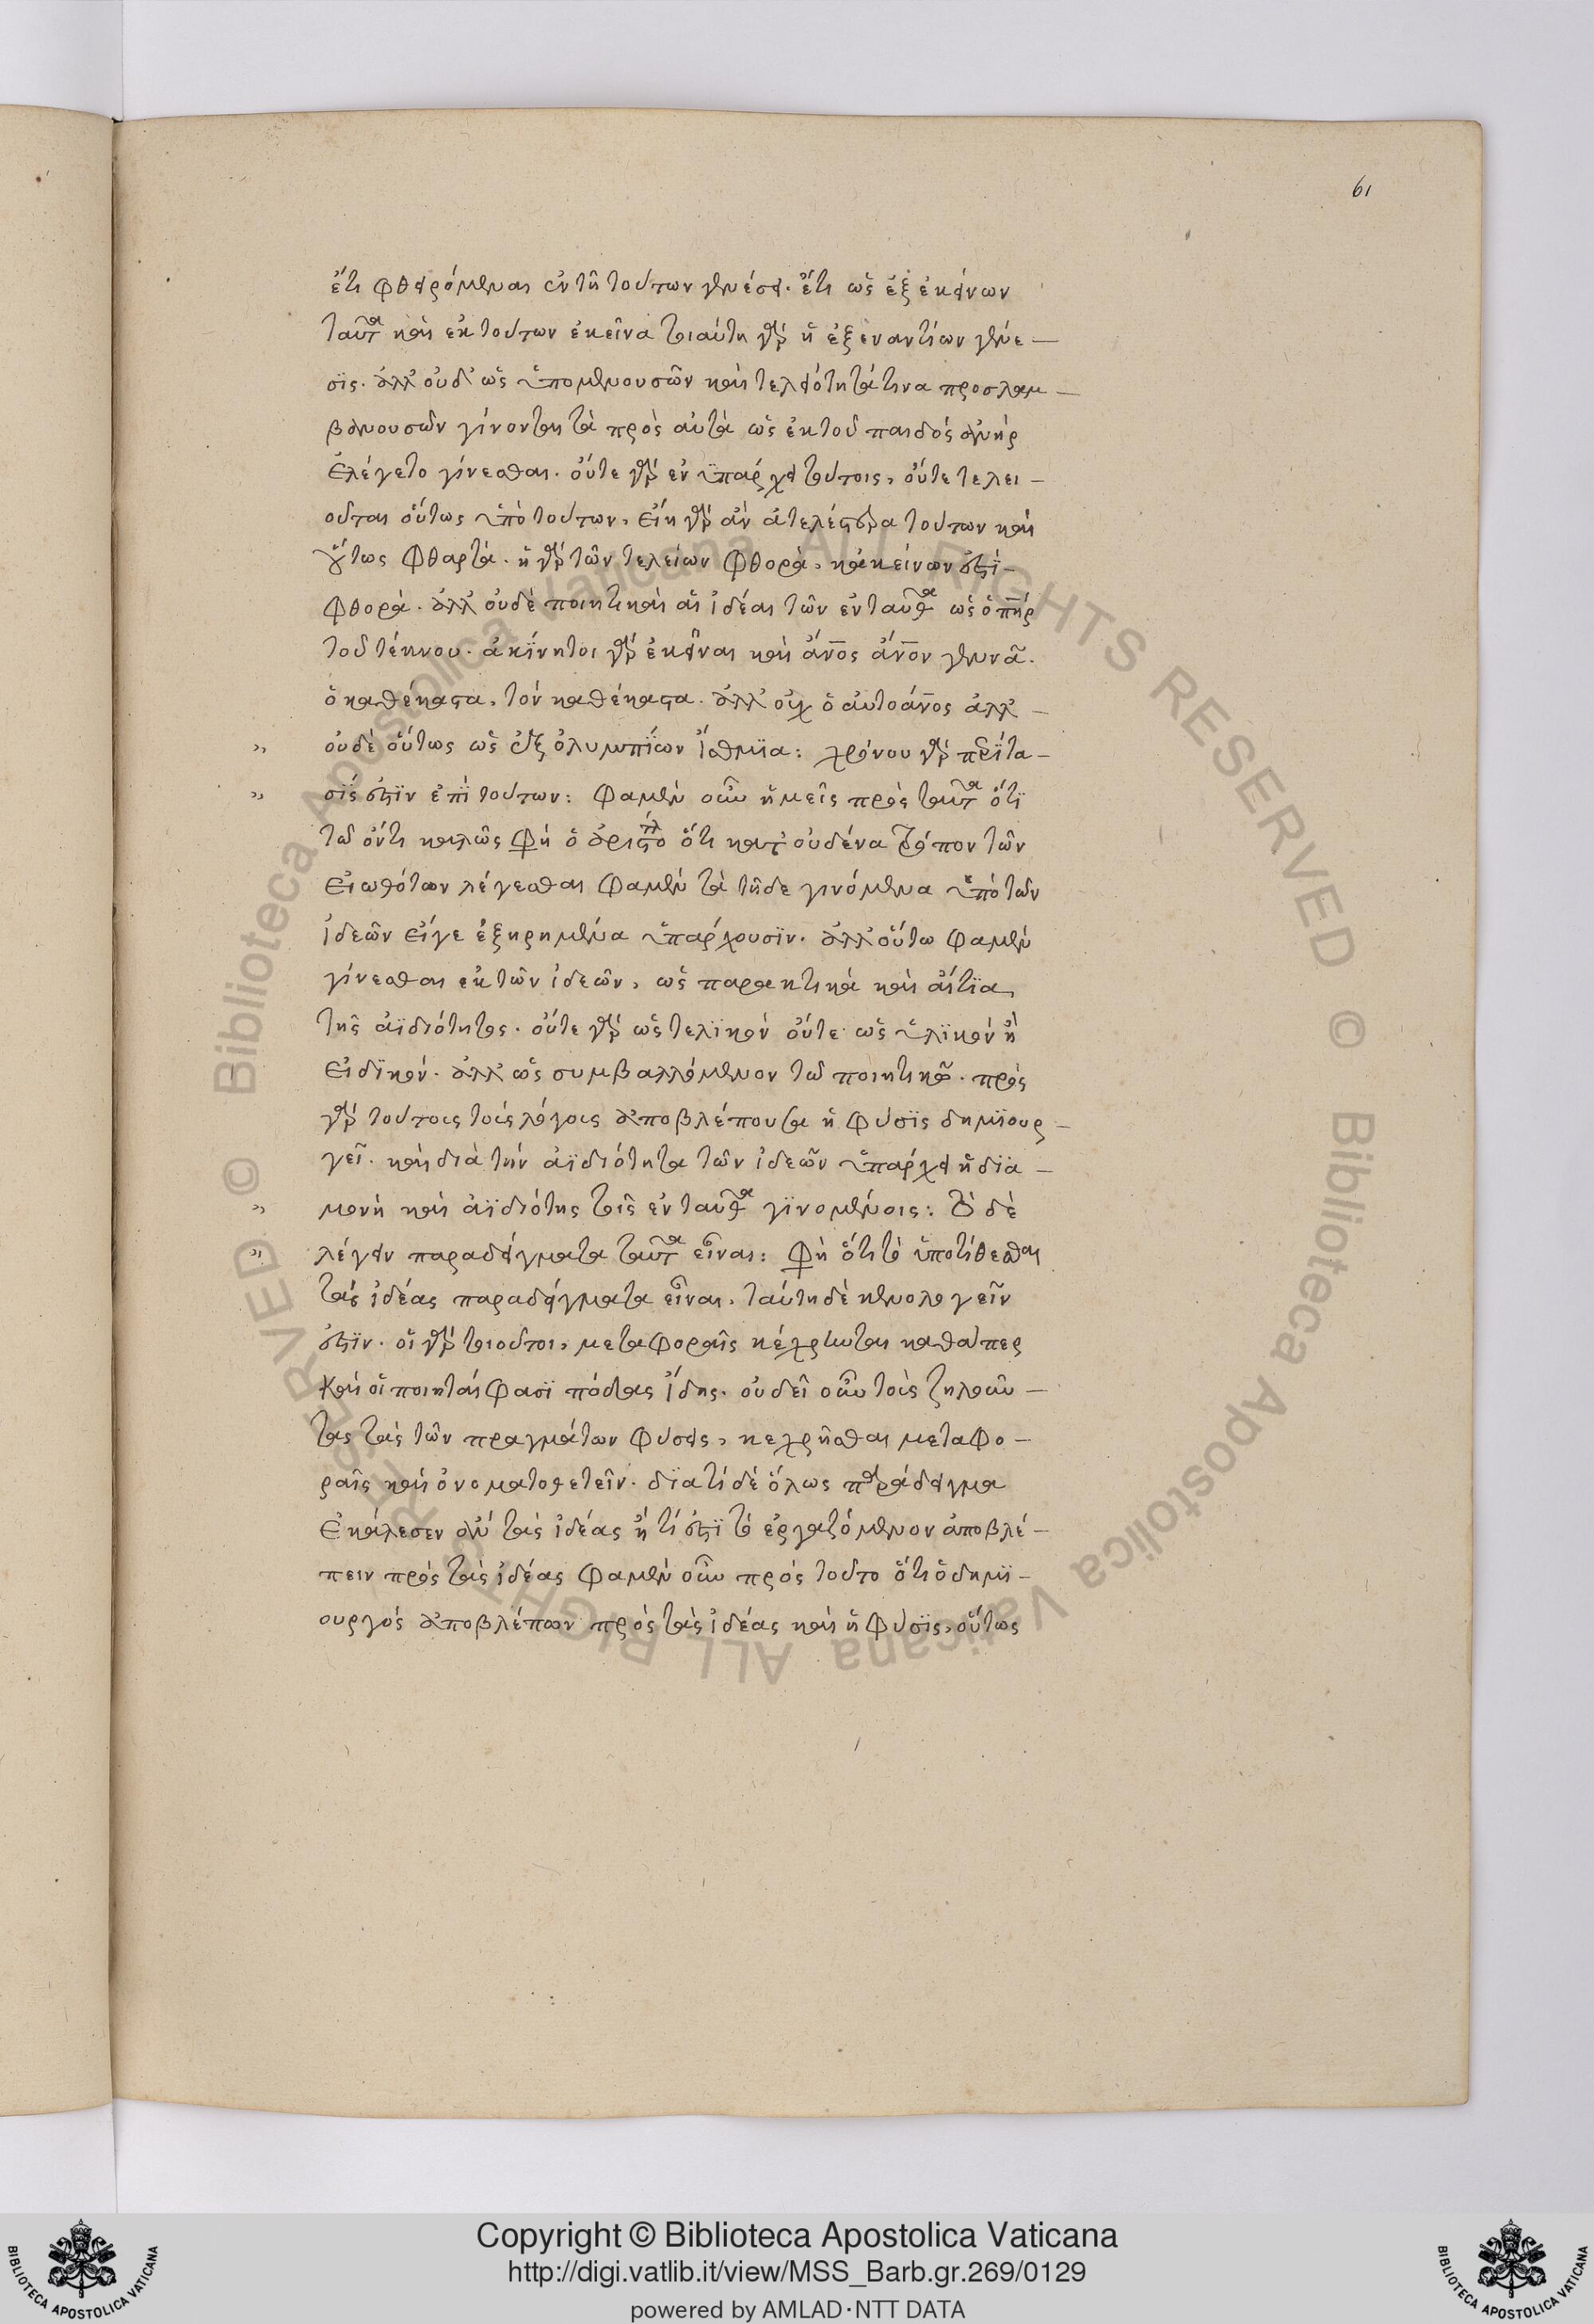 61
ἔτι φθειρόμεναι ἐν τῆ τούτων γενέσει. ἔτι ὡς ἐξ ἐκείνων
ταῦτα καὶ ἐκ τούτων ἐκεῖνα τοιαύτη γὰρ ἡ ἐξ ἐναντίων γένε—
σϊς. ἀλλ' οὐδ' ὡς ὑπομενουσῶν καὶ τελειότητά τινα προσλαμ—
βανουσῶν γίνονται τὰ πρὸς αὐτὰ ὡς ἐκ τοῦ παιδός ἀνήρ
ἐλέγετο γίνεσθαι. οὔτε γὰρ ἐν ὑπάρχει τούτοις, οὔτε τελει—
οῦται οὕτως ὑπὸ τούτων, εἴη γὰρ ἂν ἀτελέστερα τούτων καὶ
οὕτως φθαρτά. ἡ γὰρ τῶν τελείων φθορὰ, κἀκείνων ἐστὶ—
φθορά. ἀλλ' οὐδὲ ποιητικαὶ αἱ ἰδέαι τῶν ἐνταῦθα ὡς ὁ πηρ
τοῦ τέκνου. ἀκίνητοι γὰρ ἐκεῖναι καὶ ἄνος ἄνον γεννᾶ.
ὁ καθέκαστα, τὸν καθέκαστα. ἀλλ' οὐχ ὁ αὐτοάνος ἀλλ'—
„ οὐδὲ οὕτως ὡς ἐξ ὀλυμπϊων ἴσθμϊα: χρόνου γὰρ παρϊτα—
„ σϊς ἐστϊν ἐπὶ τούτων: φαμὲν οὖν ἡμεῖς πρὸς ταῦτα ὅτϊ
τῶ ὄντι καλῶς φη ὁ ἀριστοτλ ὅτι κατ' οὐδένα τρόπον τῶν
εἰωθότων λέγεσθαι φαμὲν τὰ τῆδε γινόμενα ὑπὸ τῶν
ἰδεῶν εἴγε ἐξηρημένα ὑπάρχουσϊν. ἀλλ' οὕτω φαμὲν
γίνεσθαι ἐκ τῶν ἰδεῶν, ὡς παρακτικά καὶ αἴτϊα,
τῆς ἀϊδιότητος. οὔτε γὰρ ὡς τελϊκὸν οὔτε ὡς ὑλϊκὸν ἢ
εἰδϊκόν. ἀλλ' ὡς συμβαλλόμενον τῶ ποιητικῶ. πρὸς
γὰρ τούτοις τοὶς λόγοις ἀποβλέπουσα ἡ φύσϊς δημϊουρ—
γεῖ. καὶ διὰ τὴν ἀϊδιότητα τῶν ἰδεῶν ὑπάρχει ἡ δϊα—
„ μονὴ καὶ ἀϊδιότης τοῖς ἐνταῦθα γϊνομένοις: Τὸ δὲ
„ λέγειν παραδείγματα ταῦτα εἶναι: φη ὅτι τὸ ὑποτίθεσθαι
τὰς ἰδέας παραδείγματα εἶναι, ταύτη δὲ κενολογεῖν
ἐστϊν. οἱ γὰρ τοιοῦτοι, μεταφοραῖς κέχρηνται καθάπερ
καὶ οἱ ποιηταὶ φασϊ πόδας ἴδης. οὐ δεῖ οὖν τοὶς ζηλοῦν—
τας τὰς τῶν πραγμάτων φύσεις, κεχρῆσθαι μεταφο—
ραῖς καὶ ὀνοματοθετεῖν. δϊατὶ δὲ ὅλως παράδειγμα
ἐκάλεσεν ἂν τὰς ἰδέας ἢ τί ἐστϊ τὸ ἐργαζόμενον ἀποβλέ—
πειν πρὸς τὰς ἰδέας φαμὲν οὖν πρὸς τοῦτο ὅτι ὁ δημϊ—
ουργὸς ἀποβλέπων πρὸς τὰς ἰδέας καὶ ἡ φύσϊς, οὕτως
© Biblioteca Apostolica Vaticana ALL RIGHTS RESERVED © Biblioteca Apostolica Vaticana ALL RIGHTS RESERVED
Copyright © Biblioteca Apostolica Vaticana
http://digi.vatlib.it/view/MSS_Barb.gr.269/0129
powered by AMLAD·NTT DATA
BIBLIOTECA APOSTOLICA VATICANA
BIBLIOTECA APOSTOLICA VATICANA